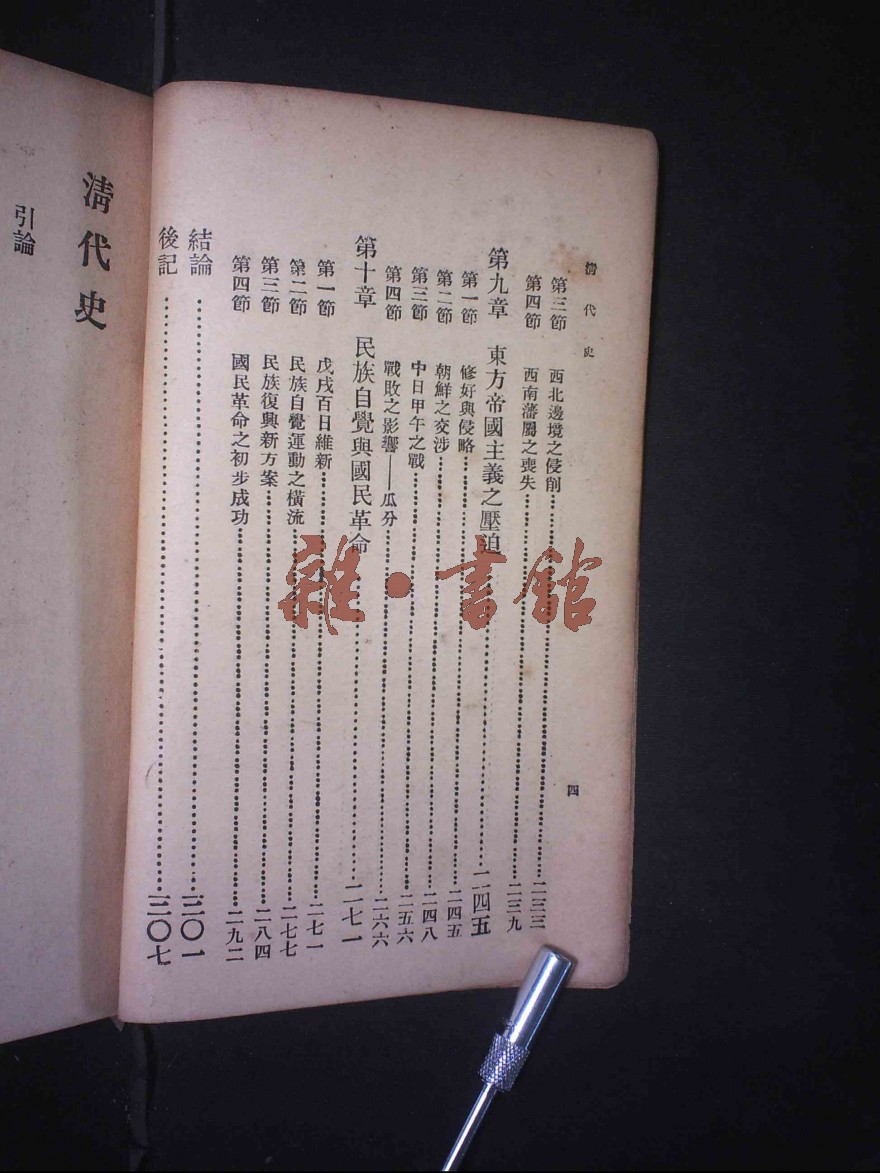 清代史
四
第三節　西北邊境之侵削……二三三
第四節　西南藩屬之喪失……二三九
第九章　東方帝國主義之壓迫……二四五
第一節　修好與侵略……二四五
第二節　朝鮮之交涉……二四八
第三節　中日甲午之戰……二五六
第四節　戰敗之影響——瓜分……二六六
第十章　民族自覺與國民革命……二七一
第一節　戊戌百日維新……二七一
第二節　民族自覺運動之橫流……二七七
第三節　民族復興新方案……二八四
第四節　國民革命之初步成功……二九二
結論……三〇一
後記……三〇七
清代史
引論
雜·書館